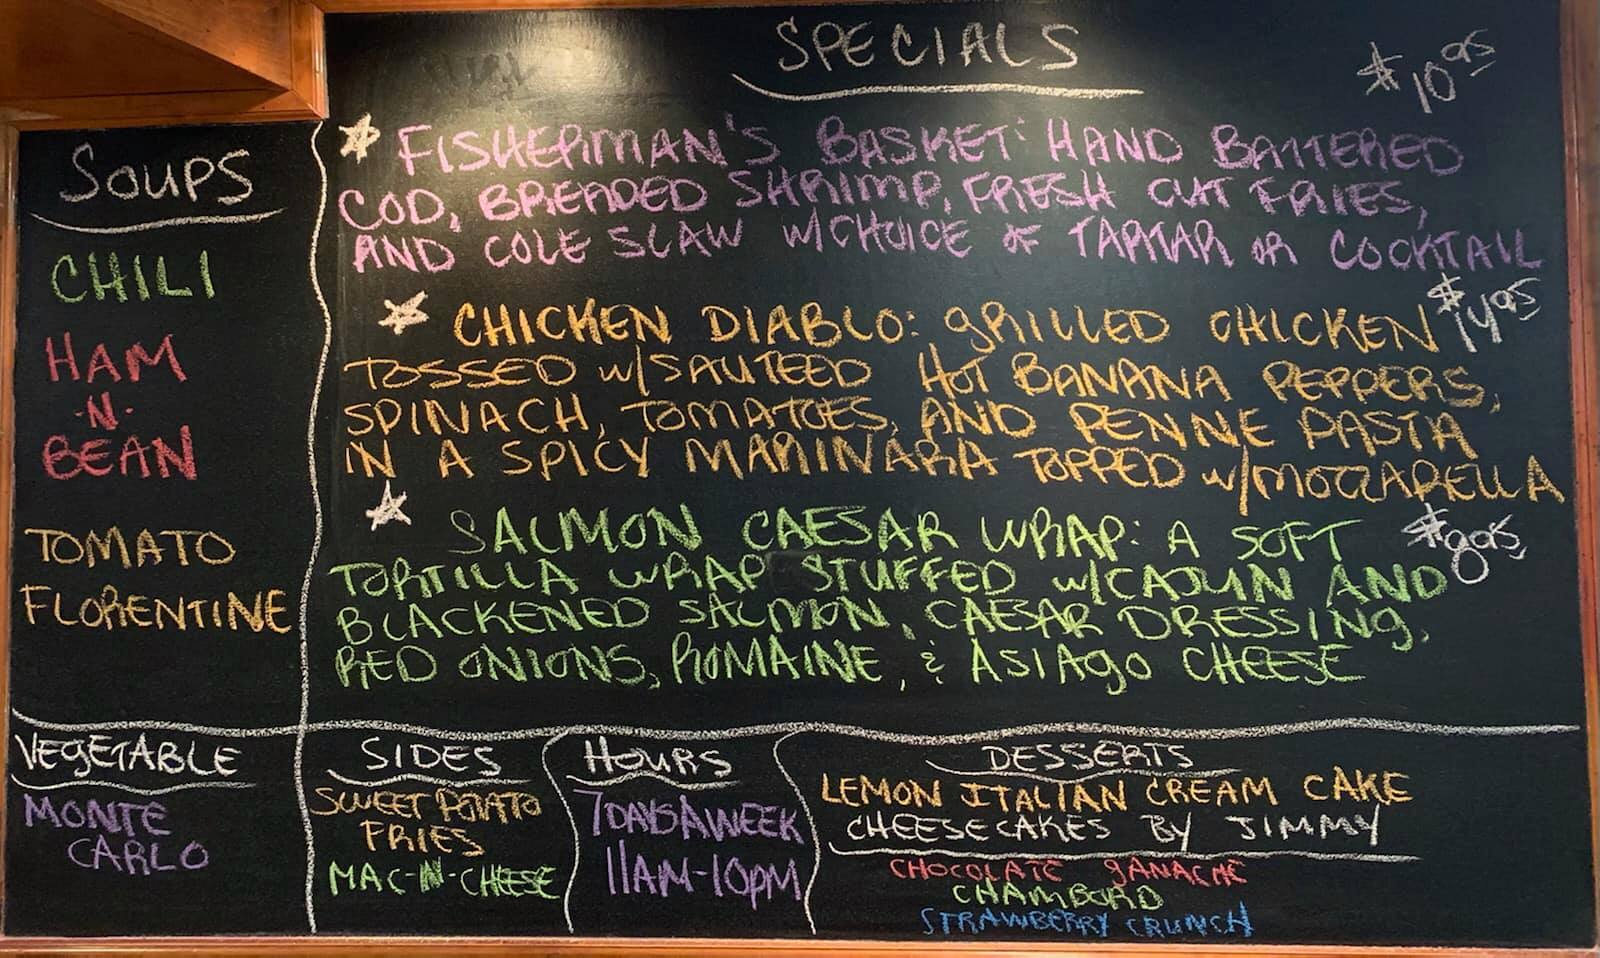 SPECIALS
$10.95
FISHERMAN'S BASKET: HAND BATTERED
COD, BREADED SHRIMP, FRESH CUT FRIES,
AND COLE SLAW W/CHOICE OF TARTAR OR COCKTAIL
$14.95
CHICKEN DIABLO: GRILLED CHICKEN
TOSSED W/SAUTEED HOT BANANA PEPPERS,
SPINACH, TOMATOES, AND PENNE PASTA
IN A SPICY MARINARA TOPPED W/MOZZARELLA
$9.95
SALMON CAESAR WRAP: A SOFT
TORTILLA WRAP STUFFED W/CAJUN AND
BLACKENED SALMON, CAESAR DRESSING,
RED ONIONS, ROMAINE, & ASIAGO CHEESE
SOUPS
CHILI
HAM
-N-
BEAN
TOMATO
FLORENTINE
VEGETABLE
MONTE
CARLO
SIDES
SWEET POTATO
FRIES
MAC-N-CHEESE
HOURS
7 DAYS A WEEK
11AM-10PM
DESSERTS
LEMON ITALIAN CREAM CAKE
CHEESECAKES BY JIMMY
CHOCOLATE GANACHE
CHAMBORD
STRAWBERRY CRUNCH